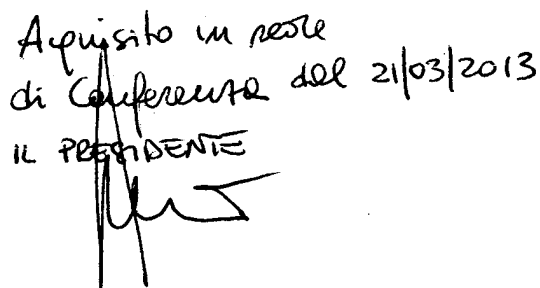 Acquisito in sede
di Conferenza del 21/03/2013
IL PRESIDENTE